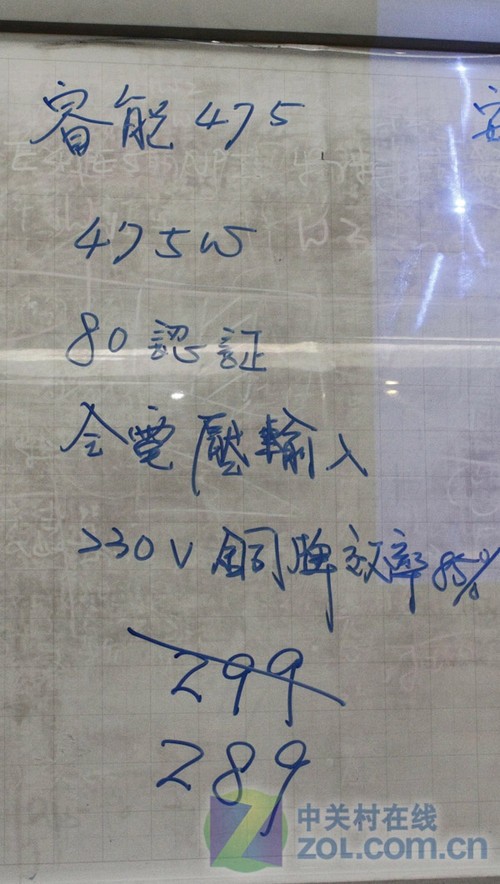 睿能475
安
475W
80認証
全電壓輸入
230V 銅牌效率85%
299
289
中关村在线
ZOL.COM.CN